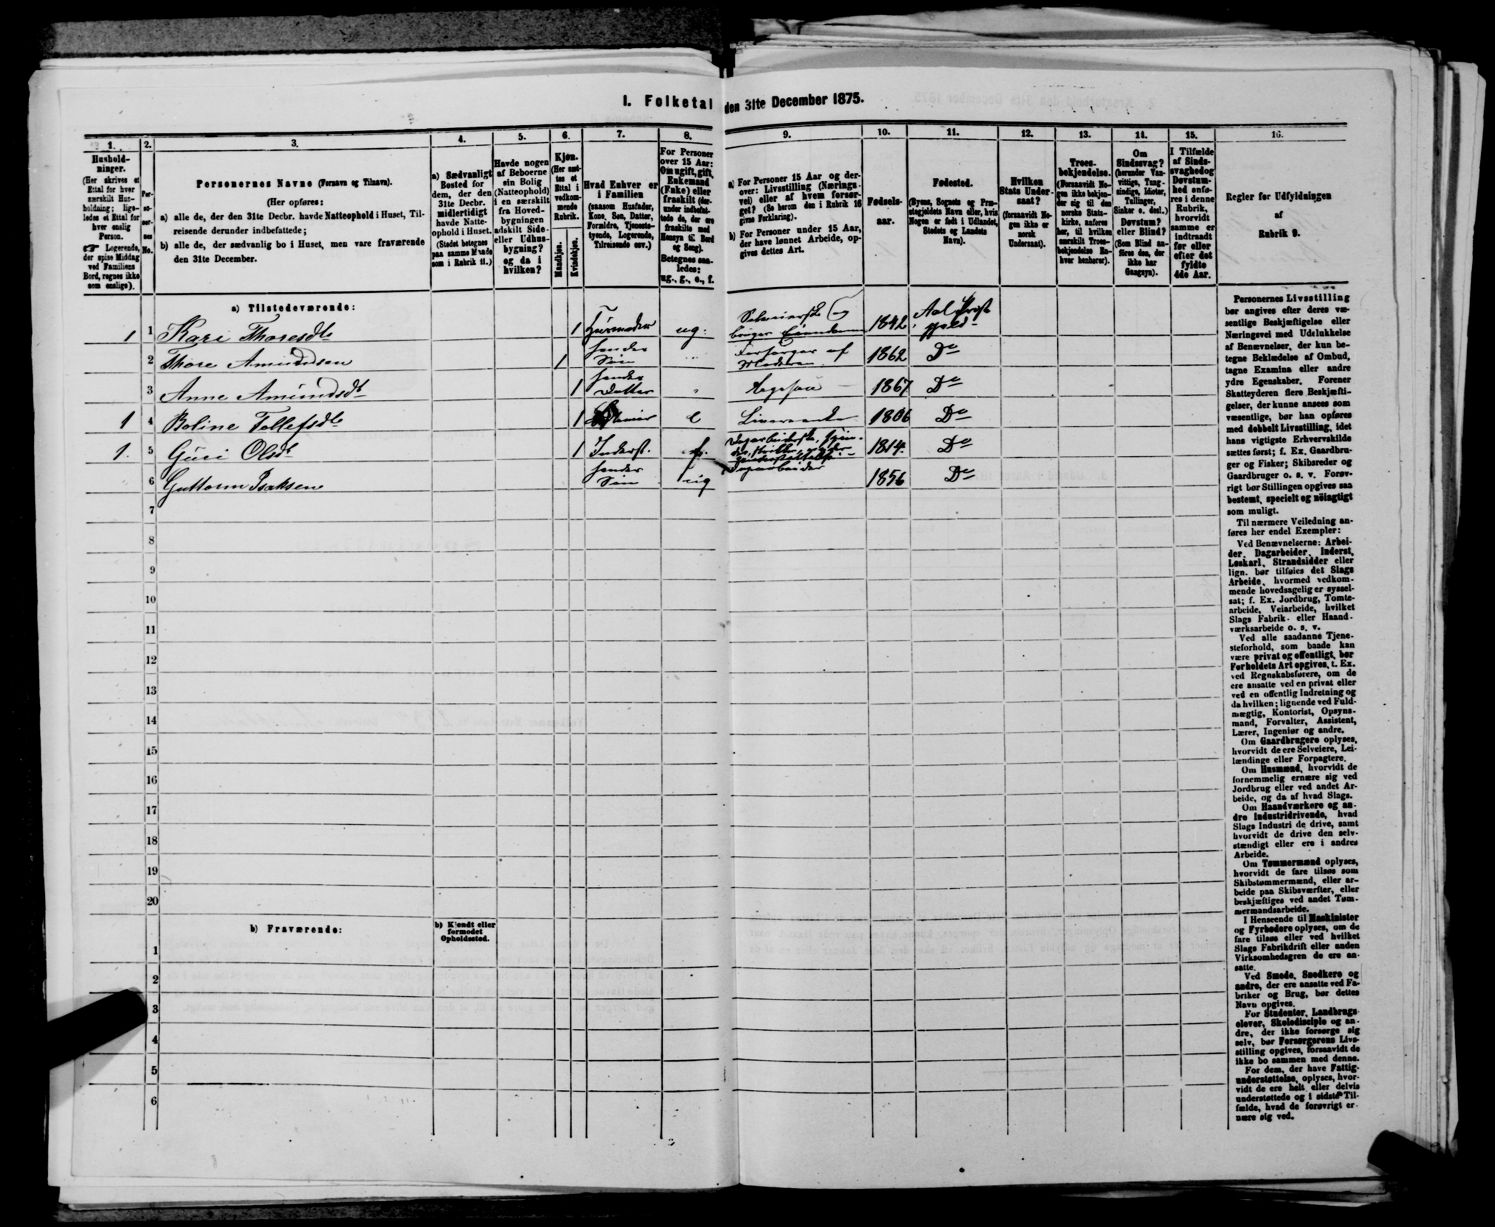 I. Folketal den 31te December 1875.
1. 2. 3. 4. 5. 6. 7. 8. 9. 10. 11. 12. 13. 14. 15. 16.
Hushold-
ninger.
(Her skrives et
Ettal for hver
særskilt Hus-
holdning; lige-
ledes et Ettal for
hver enslig
Person.
☞ Logerende,
der spise Middag
ved Familiens
Bord, regnes ikke
som enslige).
Per-
so-
ner-
nes
No.
Personernes Navne (Fornavn og Tilnavn).
(Her opføres:
a) alle de, der den 31te Decbr. havde Natteophold i Huset, Til-
reisende derunder indbefattede;
b) alle de, der sædvanlig bo i Huset, men vare fraværende
den 31te December.
a) Sædvanligt
Bosted for
dem, der den
31te Decbr.
midlertidigt
havde Natte-
ophold i Huset.
(Stedet betegnes
paa samme Maade
som i Rubrik 11.)
Havde nogen
af Beboerne
sin Bolig
(Natteophold)
i en særskilt
fra Hoved-
bygningen
adskilt Side-
eller Udhus-
bygning?
og da i
hvilken?
Kjøn.
(Her sæt-
tes et
Ettal i
vedkom-
mende
Rubrik.
Mandkjøn.
Kvindekjøn.
Hvad Enhver er
i Familien
(saasom Husfader,
Kone, Søn, Datter,
Forældre, Tjeneste-
tyende, Logerende,
Tilreisende osv.)
For Personer
over 15 Aar:
Om ugift, gift,
Enkemand
(Enke) eller
fraskilt (der-
under indbefat-
tede de, der ere
fraskilte med
Hensyn til Bord
og Seng).
Betegnes saa-
ledes:
ug., g., e., f.
a) For Personer 15 Aar og der-
over: Livsstilling (Nærings-
vei) eller af hvem forsør-
get? (Se herom den i Rubrik 16
givne Forklaring).
b) For Personer under 15 Aar,
der have lønnet Arbeide, op-
gives dettes Art.
Fødsels-
aar.
Fødested.
(Byens, Sognets og Præ-
stegjeldets Navn eller, hvis
Nogen er født i Udlandet,
Stedets og Landets
Navn).
Hvilken
Stats Under-
saat?
(forsaavidt No-
gen ikke er
norsk
Undersaat).
Troes-
bekjendelse.
(Forsaavidt No-
gen ikke bekjen-
der sig til den
norske Stats-
kirke, anføres
her, til hvilken
særskilt Troes-
bekjendelse En-
hver henhører).
Om
Sindssvag?
(herunder Van-
vittige, Tung-
sindige, Idioter,
Tullinger,
Sinker o. desl.)
Døvstum?
eller Blind?
(Som Blind an-
føres den, der
ikke har
Gangsyn).
I Tilfælde
af Sinds-
svaghed og
Døvstum-
hed anfø-
res i denne
Rubrik,
hvorvidt
samme er
indtraadt
før eller
efter det
fyldte
4de Aar.
Regler før Udfyldningen
af
Rubrik 9.
a) Tilstedeværende:
1 1 Kari Thoresdt 1 Huusmoder ug. Selveierske og bruger Eiendommen 1842 Aal Præstegjeld
2 Thore Amundsen 1 hendes Søn Forsørges af Moderen 1862 Do
3 Anne Amundsdt 1 hendes Datter 1867 Do
1 4 Boline Tollefsdt 1 e 1806 Do
1. 5 Guri Olsdt 1 Inderst. 1814. Do
6 Guttorm Isaksen hendes Søn ug Dagarbeider 1856 Do
7
8
9
10
11
12
13
14
15
16
17
18
19
20
b) Fraværende:
b) Kjendt eller
formodet
Opholdssted.
1
2
3
4
5
6
Personernes Livsstilling
bør angives efter deres væ-
sentlige Beskjæftigelse eller
Næringsvei med Udelukkelse
af Benævnelser, der kun be-
tegne Beklædelse af Ombud,
tagne Examina eller andre
ydre Egenskaber. Forener
Skatteyderen flere Beskjæfti-
gelser, der kunne ansees som
væsentlige, bør han opføres
med dobbelt Livsstilling, idet
hans vigtigste Erhvervskilde
sættes først; f. Ex. Gaardbru-
ger og Fisker; Skibsreder og
Gaardbruger o. s. v. Forøv-
rigt bør Stillingen opgives saa
bestemt, specielt og nøiagtigt
som muligt.
Til nærmere Veiledning an-
føres her endel Exempler:
Ved Benævnelserne: Arbei-
der, Dagarbeider, Inderst,
Løskarl, Strandsidder eller
lign. bør tilføies det Slags
Arbeide, hvormed vedkom-
mende hovedsagelig er syssel-
sat; f. Ex. Jordbrug, Tomte-
arbeide, Veiarbeide, hvilket
Slags Fabrik- eller Haand-
værksarbeide o. s. v.
Ved alle saadanne Tjene-
steforhold, som baade kan
være privat og offentligt, bør
Forholdets Art opgives, t. Ex.
ved Regnskabsførere, om de
ere ansatte ved en privat eller
ved en offentlig Indretning og
da hvilken; lignende ved Fuld-
mægtig, Kontorist, Opsyns-
mand, Forvalter, Assistent,
Lærer, Ingeniør og andre.
Om Gaardbrugere oplyses,
hvorvidt de ere Selveiere, Lei-
lændinge eller Forpagtere.
Om Husmænd, hvorvidt de
fornemmelig ernære sig ved
Jordbrug eller ved andet Ar-
beide, og da af hvad Slags.
Om Haandværkere og an-
dre Industridrivende, hvad
Slags Industri de drive, samt
hvorvidt de drive den selv-
stændigt eller ere i andres
Arbeide.
Om Tømmermænd oplyses,
hvorvidt de fare tilsøs som
Skibstømmermænd, eller ar-
beide paa Skibsværfter, eller
beskjæftiges ved andet Tøm-
mermandsarbeide.
I Henseende til Maskinister
og Fyrbødere oplyses, om de
fare tilsøs eller ved hvilket
Slags Fabrikdrift eller anden
Virksomhedsgren de ere an-
satte.
Ved Smede, Snedkere og
andre, der ere ansatte ved Fa-
briker og Brug, bør dettes
Navn opgives.
For Studenter, Landbrugs-
elever, Skoledisciple og an-
dre, der ikke forsørge sig
selv, bør Forsørgerens Livs-
stilling opgives, forsaavidt de
ikke bo sammen med denne.
For dem, der have Fattig-
understøttelse, oplyses, hvor-
vidt de ere helt eller delvis
understøttede og i sidste Til-
fælde, hvad de forøvrigt er-
nære sig ved.